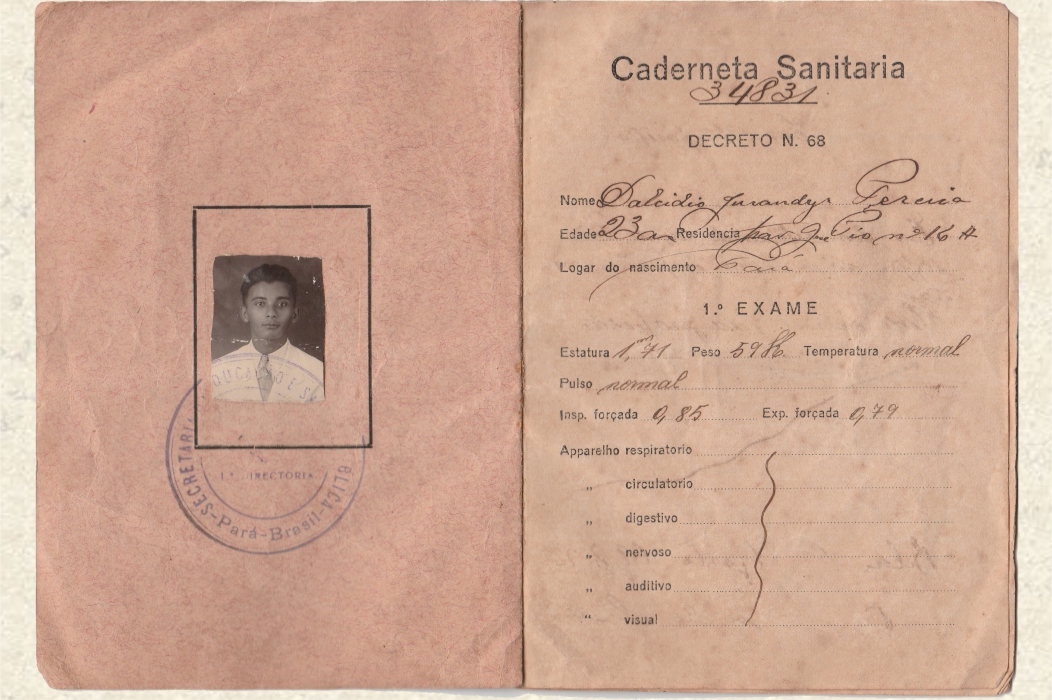 SECRETARIA
1.ª DIRECTORIA
BLICA-
-Pará-Brasil-
Caderneta Sanitaria
34831
DECRETO N. 68
Nome Dalcidio Jurandyr Pereira
Edade 23 a Residencia Pio nº 16 A
Logar do nascimento Pará
1.º EXAME
Estatura 1,m71 Peso 59 K Temperatura normal
Pulso normal
Insp. forçada 0,85 Exp. forçada 0,79
Apparelho respiratorio
„ circulatorio
„ digestivo
„ nervoso
„ auditivo
“ visual